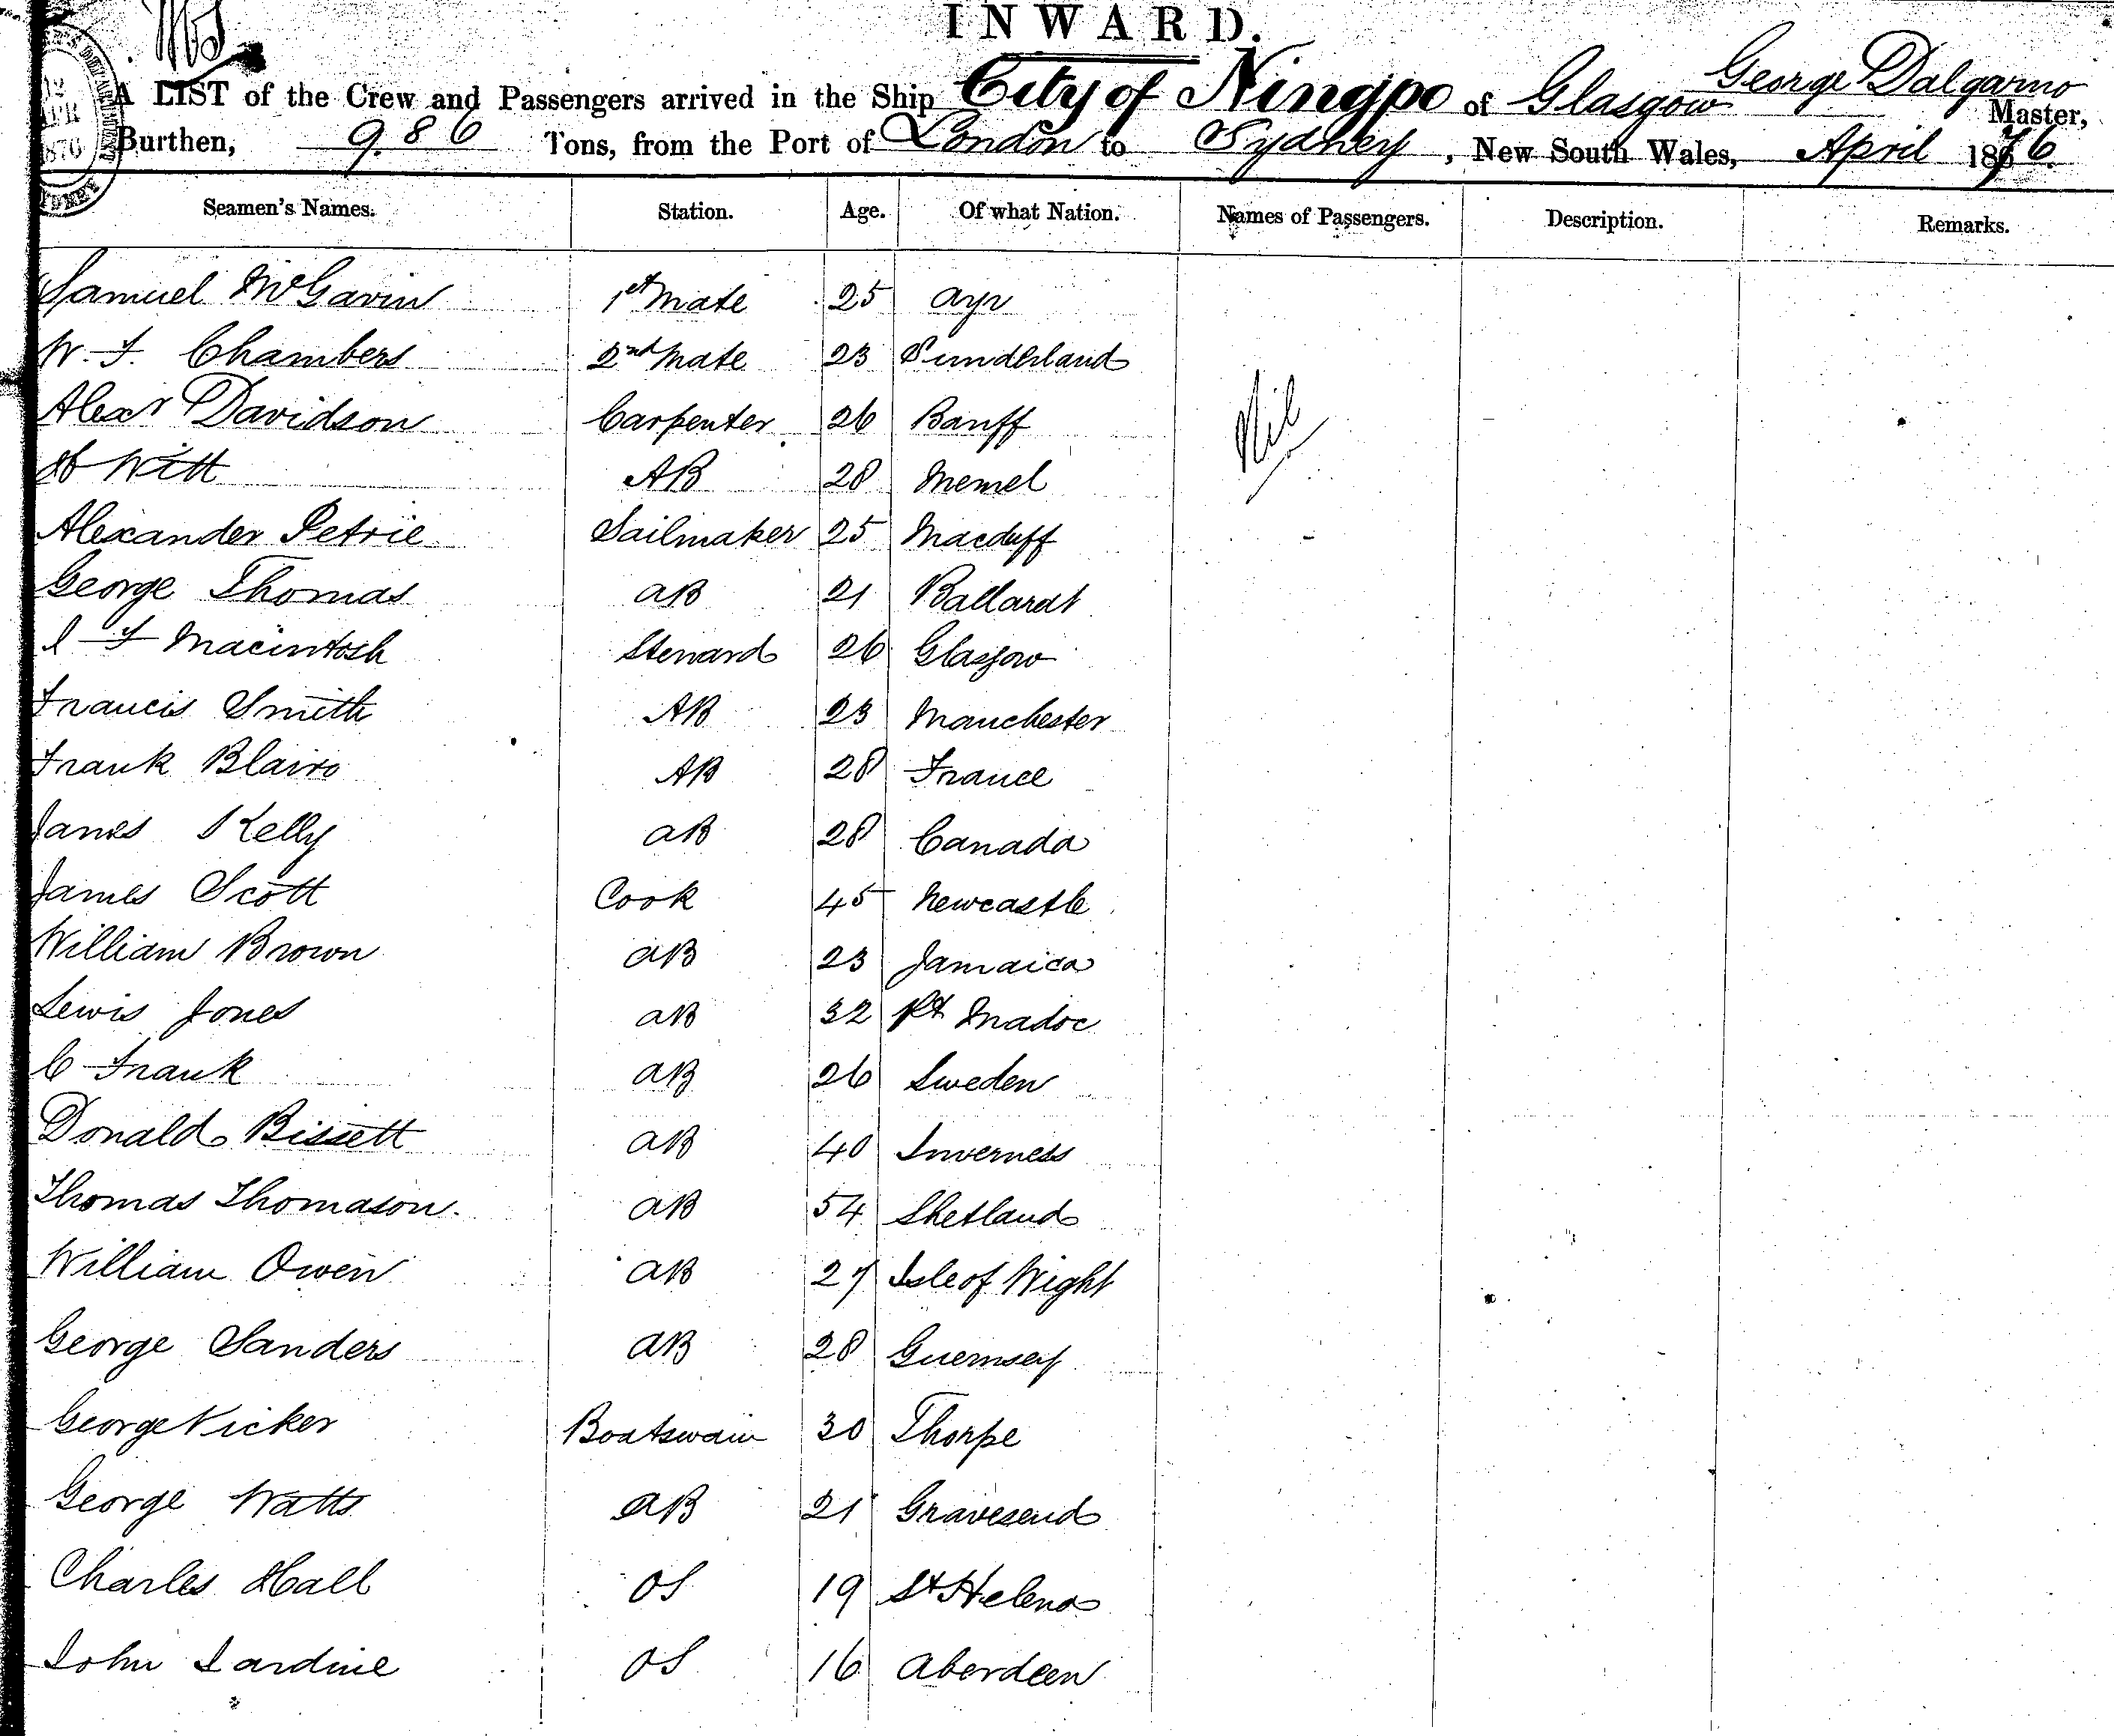 INWARD.
A LIST of the Crew and Passengers arrived in the Ship City of Ningpo of Glasgow George Dalgarno Master,
Burthen, 986 Tons, from the Port of London to Sydney, New South Wales, April 1876.
Seamen's Names. Station. Age. Of what Nation. Names of Passengers. Description. Remarks.
Samuel McGavin 1st Mate 25 Ayr
W. F. Chambers 2nd Mate 23 Sunderland
Alexr Davidson Carpenter 26 Banff Nil
H Witt AB 28 Memel
Alexander Petrie Sailmaker 25 Macduff
George Thomas AB 21 Ballarat
I F Macintosh Steward 26 Glasgow
Francis Smith AB 23 Manchester
Frank Blairo AB 28 France
James Kelly AB 28 Canada
James Scott Cook 45 Newcastle
William Brown AB 23 Jamaica
Lewis Jones AB 32 Pt Madoc
C Frank AB 26 Sweden
Donald Bissett AB 40 Inverness
Thomas Thomason. AB 54 Shetland
William Owen AB 27 Isle of Wight
George Sanders AB 28 Guernsey
George Vicker Boatswain 30 Thorpe
George Watts AB 21 Gravesend
Charles Hall OS 19 St Helena
John Jardine OS 16 Aberdeen